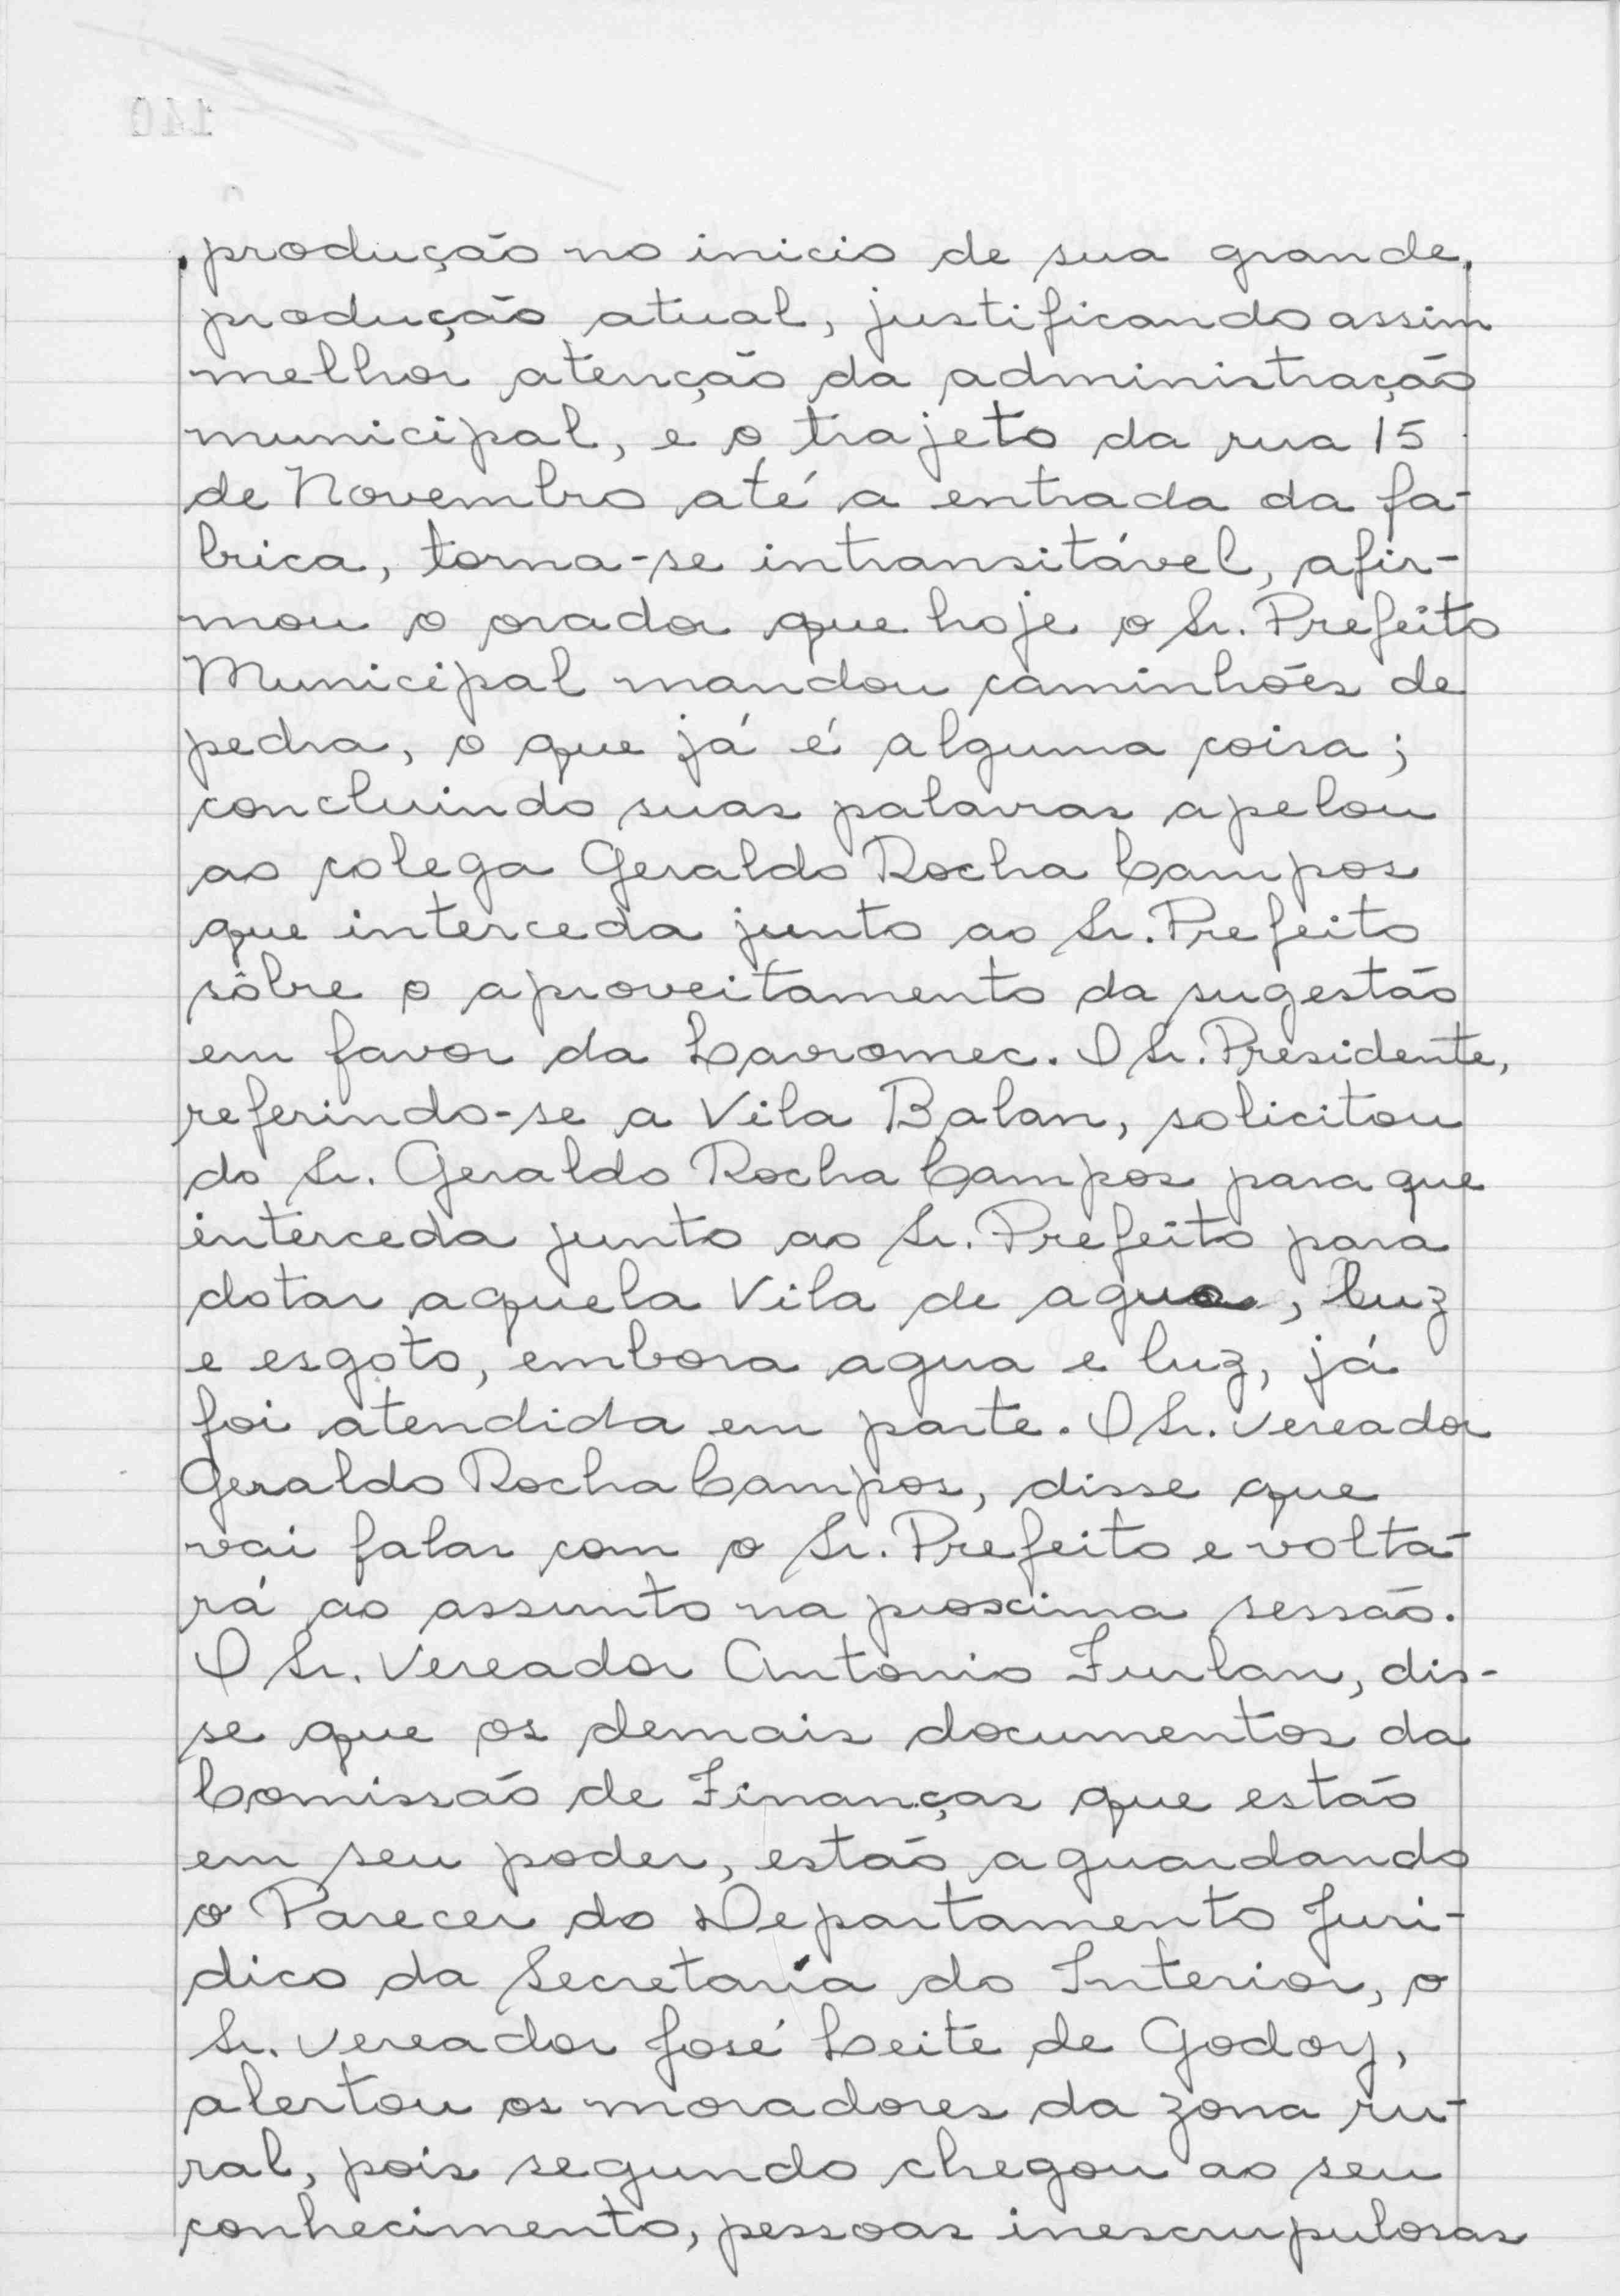 produção no inicio de sua grande
produção atual, justificando assim
melhor atenção da administração
municipal, e o trajeto da rua 15
de Novembro até a entrada da fa-
brica, torna-se intransitável, afir-
mou o orador que hoje o Sr. Prefeito
Municipal mandou caminhões de
pedra, o que já é alguma coisa;
concluindo suas palavras apelou
ao colega Geraldo Rocha Campos
que interceda junto ao Sr. Prefeito
sôbre o aproveitamento da sugestão
em favor da Lavromec. O Sr. Presidente,
referindo-se a Vila Balan, solicitou
do Sr. Geraldo Rocha Campos para que
interceda junto ao Sr. Prefeito para
dotar aquela Vila de agua, luz
e esgoto, embora agua e luz, já
foi atendida em parte. O Sr. Vereador
Geraldo Rocha Campos, disse que
vai falar com o Sr. Prefeito e volta-
rá ao assunto na proxima sessão.
O Sr. Vereador Antonio Furlan, dis-
se que os demais documentos da
Comissão de Finanças que estão
em seu poder, estão aguardando
o Parecer do Departamento Juri-
dico da Secretaria do Interior, o
Sr. Vereador José Leite de Godoy,
alertou os moradores da zona ru-
ral, pois segundo chegou ao seu
conhecimento, pessoas inescrupulosas